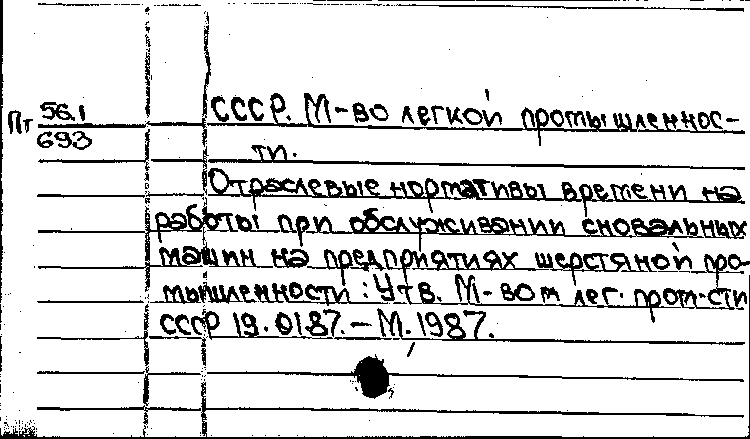 Пт 56.1 СССР. М-во легкой промышленнос-
693
ти.
Отраслевые нормативы времени на
работы при обслуживании сновальных
машин на предприятиях шерстяной про-
мышленности: Утв. М-вом лег. пром-сти
СССР 19.01.87. – М. 1987.